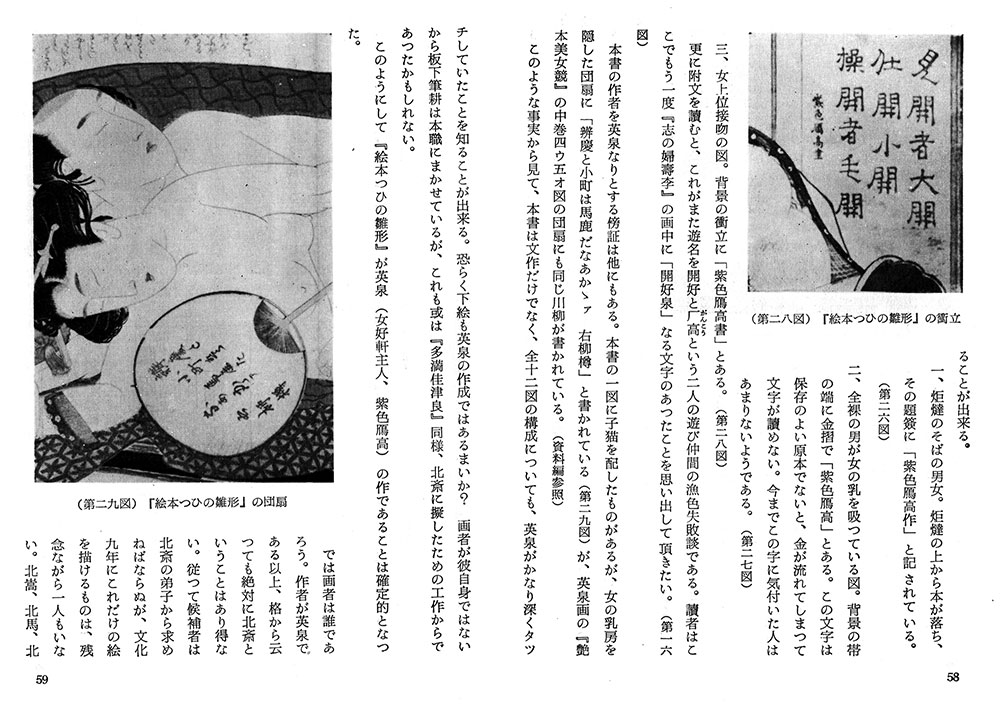 見開者大開
仕開小開
操開者毛開
紫色鴈高書
(第二八図)『絵本つひの雛形』の衝立
ることが出来る。
一、炬燵のそばの男女。炬燵の上から本が落ち、
その題簽に「紫色鴈高作」と記されている。
(第二六図)
二、全裸の男が女の乳を吸つている図。背景の帯
の端に金摺で「紫色鴈高」とある。この文字は
保存のよい原本でないと、金が流れてしまつて
文字が読めない。今までこの字に気付いた人は
あまりないようである。(第二七図)
三、女上位接吻の図。背景の衝立に「紫色鴈高書」とある。(第二八図)
更に附文を読むと、これがまた遊名を開好と厂高(がんこう)という二人の遊び仲間の漁色失敗談である。讀者はこ
こでもう一度『志の婦壽李』の画中に「開好泉」なる文字のあつたことを思い出して頂きたい。(第一六
図)
本書の作者を英泉なりとする傍証は他にもある。本書の一図に子猫を配したものがあるが、女の乳房を
隠した団扇に「辨慶と小町は馬鹿だなあかゝァ 右柳樽」と書かれている(第二九図)が、英泉画の『艶
本美女競』の中巻四ウ五オ図の団扇にも同じ川柳が書かれている。(資料編参照)
このような事実から見て、本書は文作だけでなく、全十二図の構成についても、英泉がかなり深くタツ
58
チしていたことを知ることが出来る。恐らく下絵も英泉の作成ではあるまいか? 画者が彼自身ではない
から板下筆耕は本職にまかせているが、これも或は『多満佳津良』同様、北斎に擬したための工作からで
あつたかもしれない。
このようにして『絵本つひの雛形』が英泉(女好軒主人、紫色鴈高)の作であることは確定的となつ
た。
(第二九図)『絵本つひの雛形』の団扇
では画者は誰であ
ろう。作者が英泉で
ある以上、格から云
つても絶対に北斎と
いうことはあり得な
い。従つて候補者は
北斎の弟子から求め
ねばならぬが、文化
九年にこれだけの絵
を描けるものは、残
念ながら一人もいな
い。北嵩、北馬、北
59